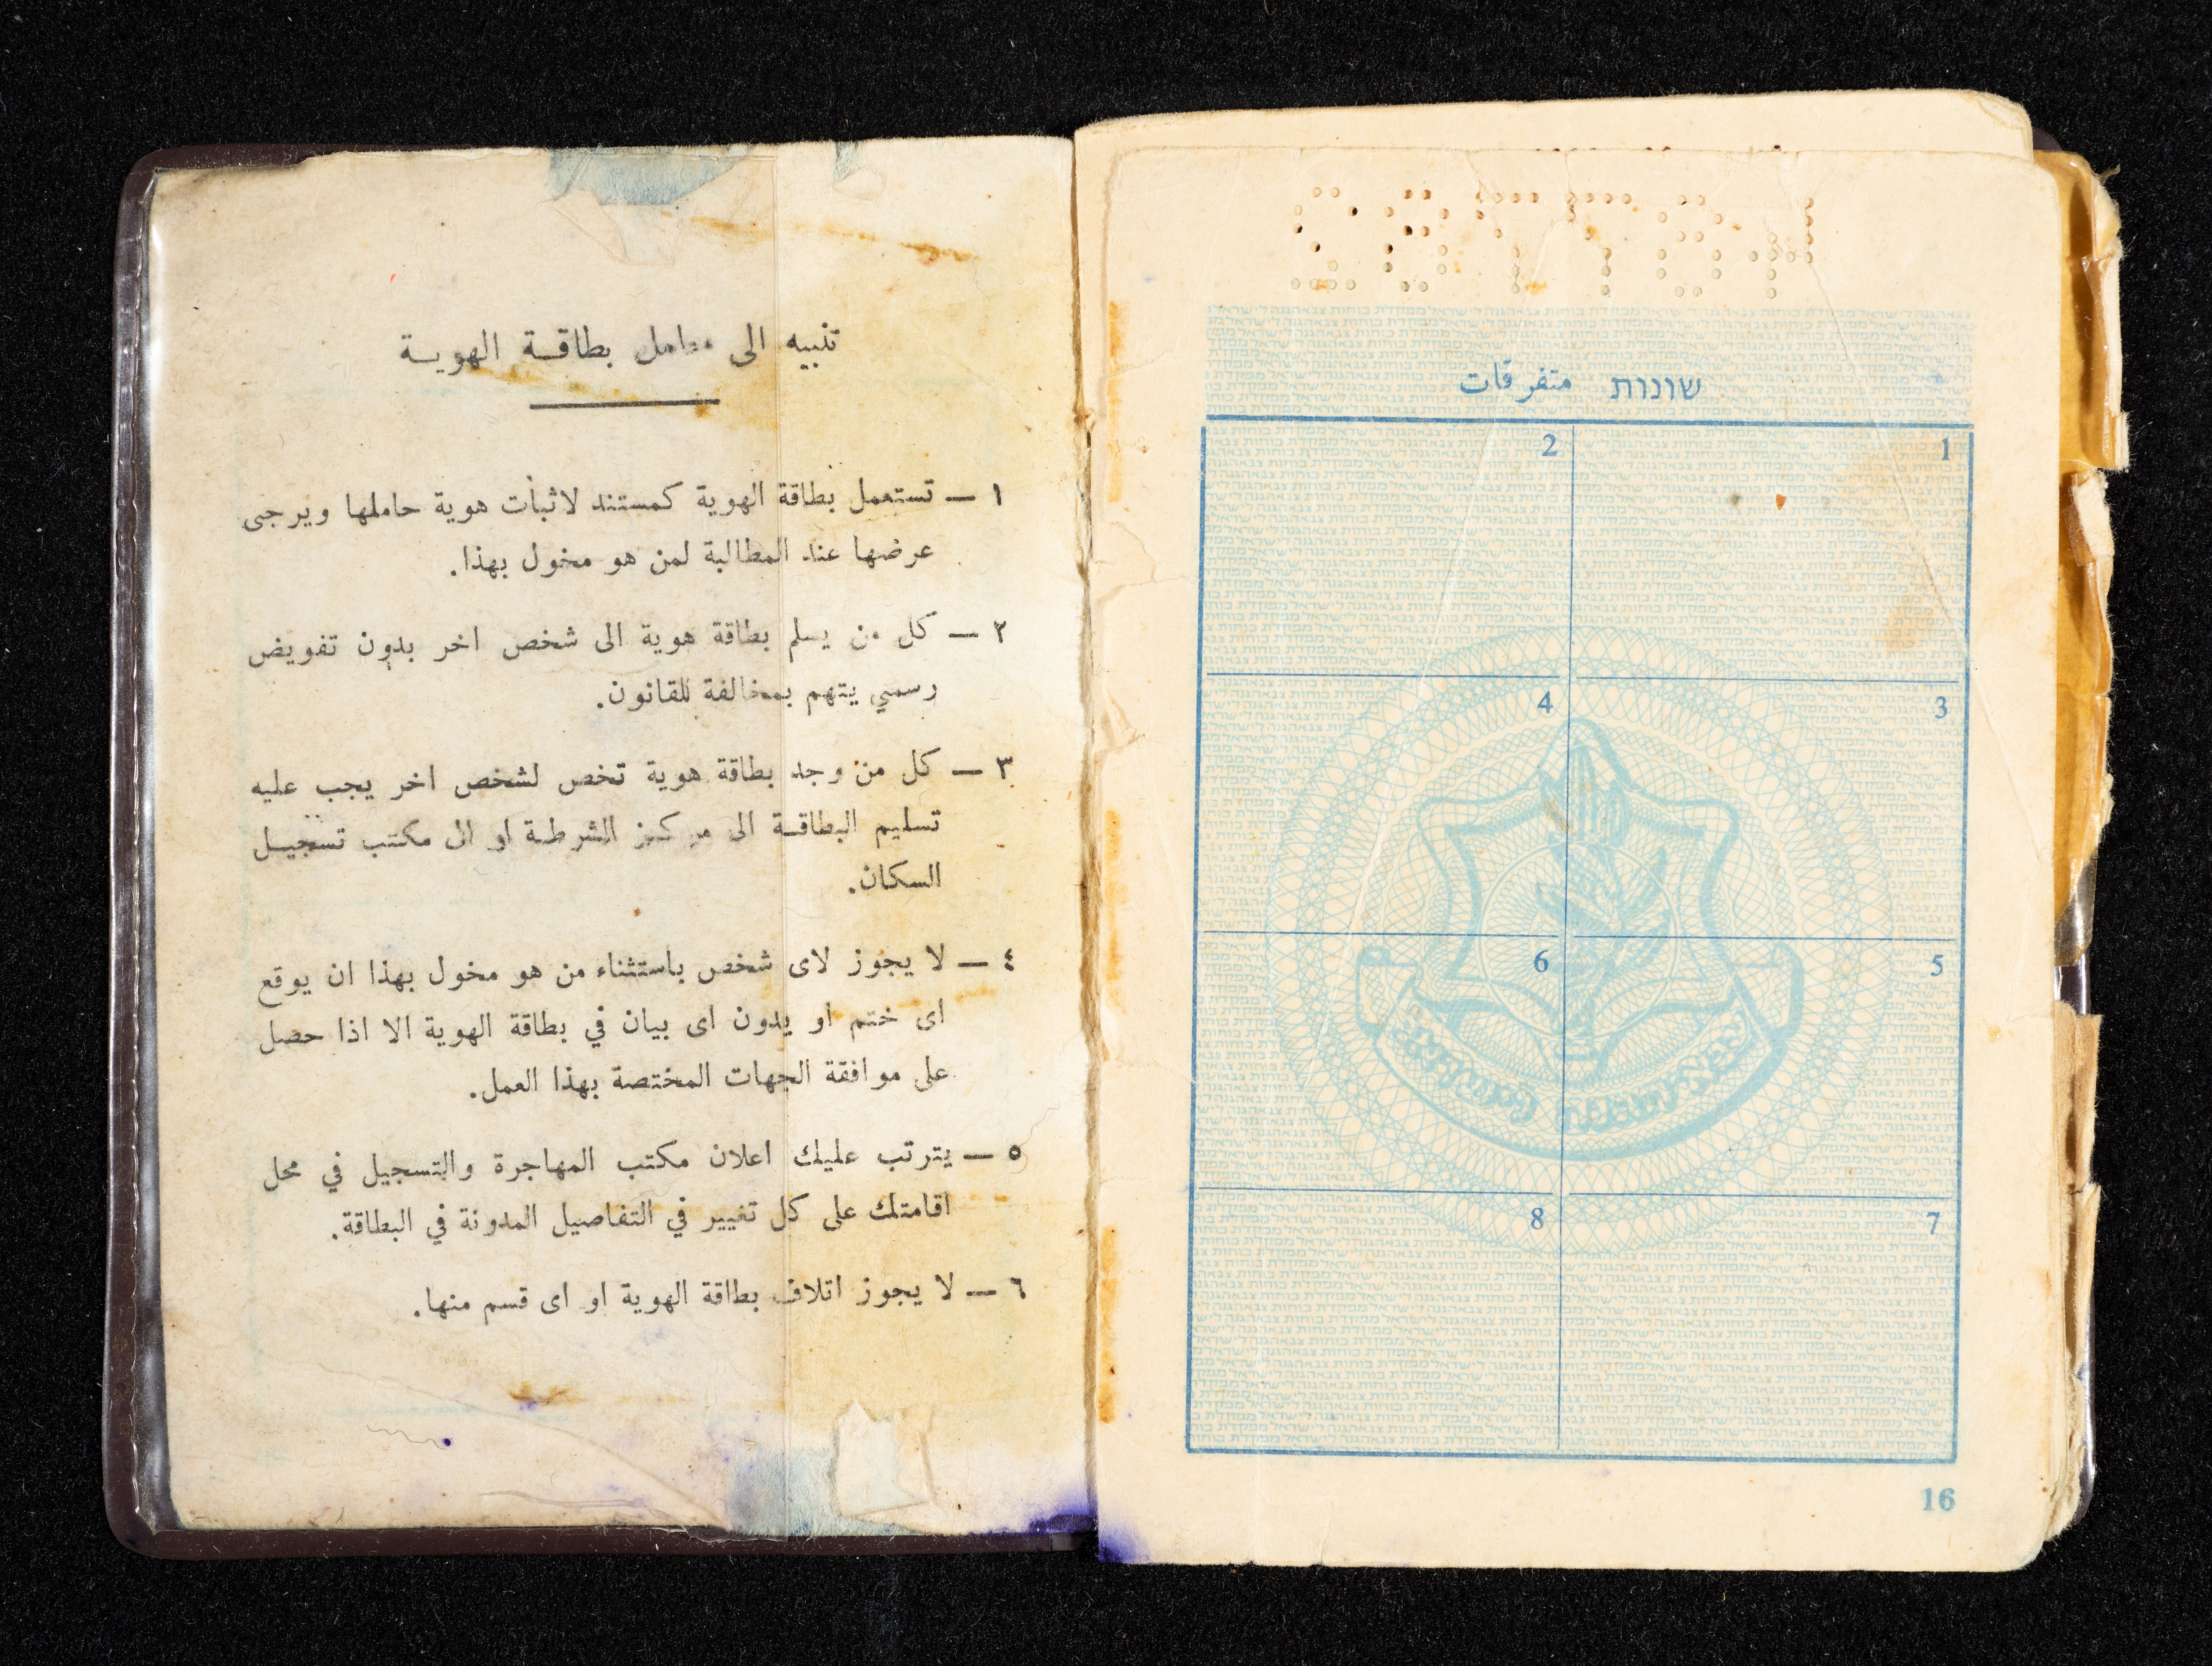 تنبيه الى حامل بطاقة الهوية
١ — تستعمل بطاقة الهوية كمستند لاثبات هوية حاملها ويرجى
عرضها عند المطالبة لمن هو مخول بهذا.
٢ — كل من يسلم بطاقة هوية الى شخص اخر بدون تفويض
رسمي يتهم بمخالفة للقانون.
٣ — كل من وجد بطاقة هوية تخص لشخص اخر يجب عليه
تسليم البطاقة الى مركز الشرطة او الى مكتب تسجيل
السكان.
٤ — لا يجوز لاى شخص باستثناء من هو مخول بهذا ان يوقع
اى ختم او يدون اى بيان في بطاقة الهوية الا اذا حصل
على موافقة الجهات المختصة بهذا العمل.
٥ — يترتب عليك اعلان مكتب المهاجرة والتسجيل في محل
اقامتك على كل تغيير في التفاصيل المدونة في البطاقة.
٦ — لا يجوز اتلاف بطاقة الهوية او اى قسم منها.
שונות متفرقات
1
2
3
4
5
6
7
8
16